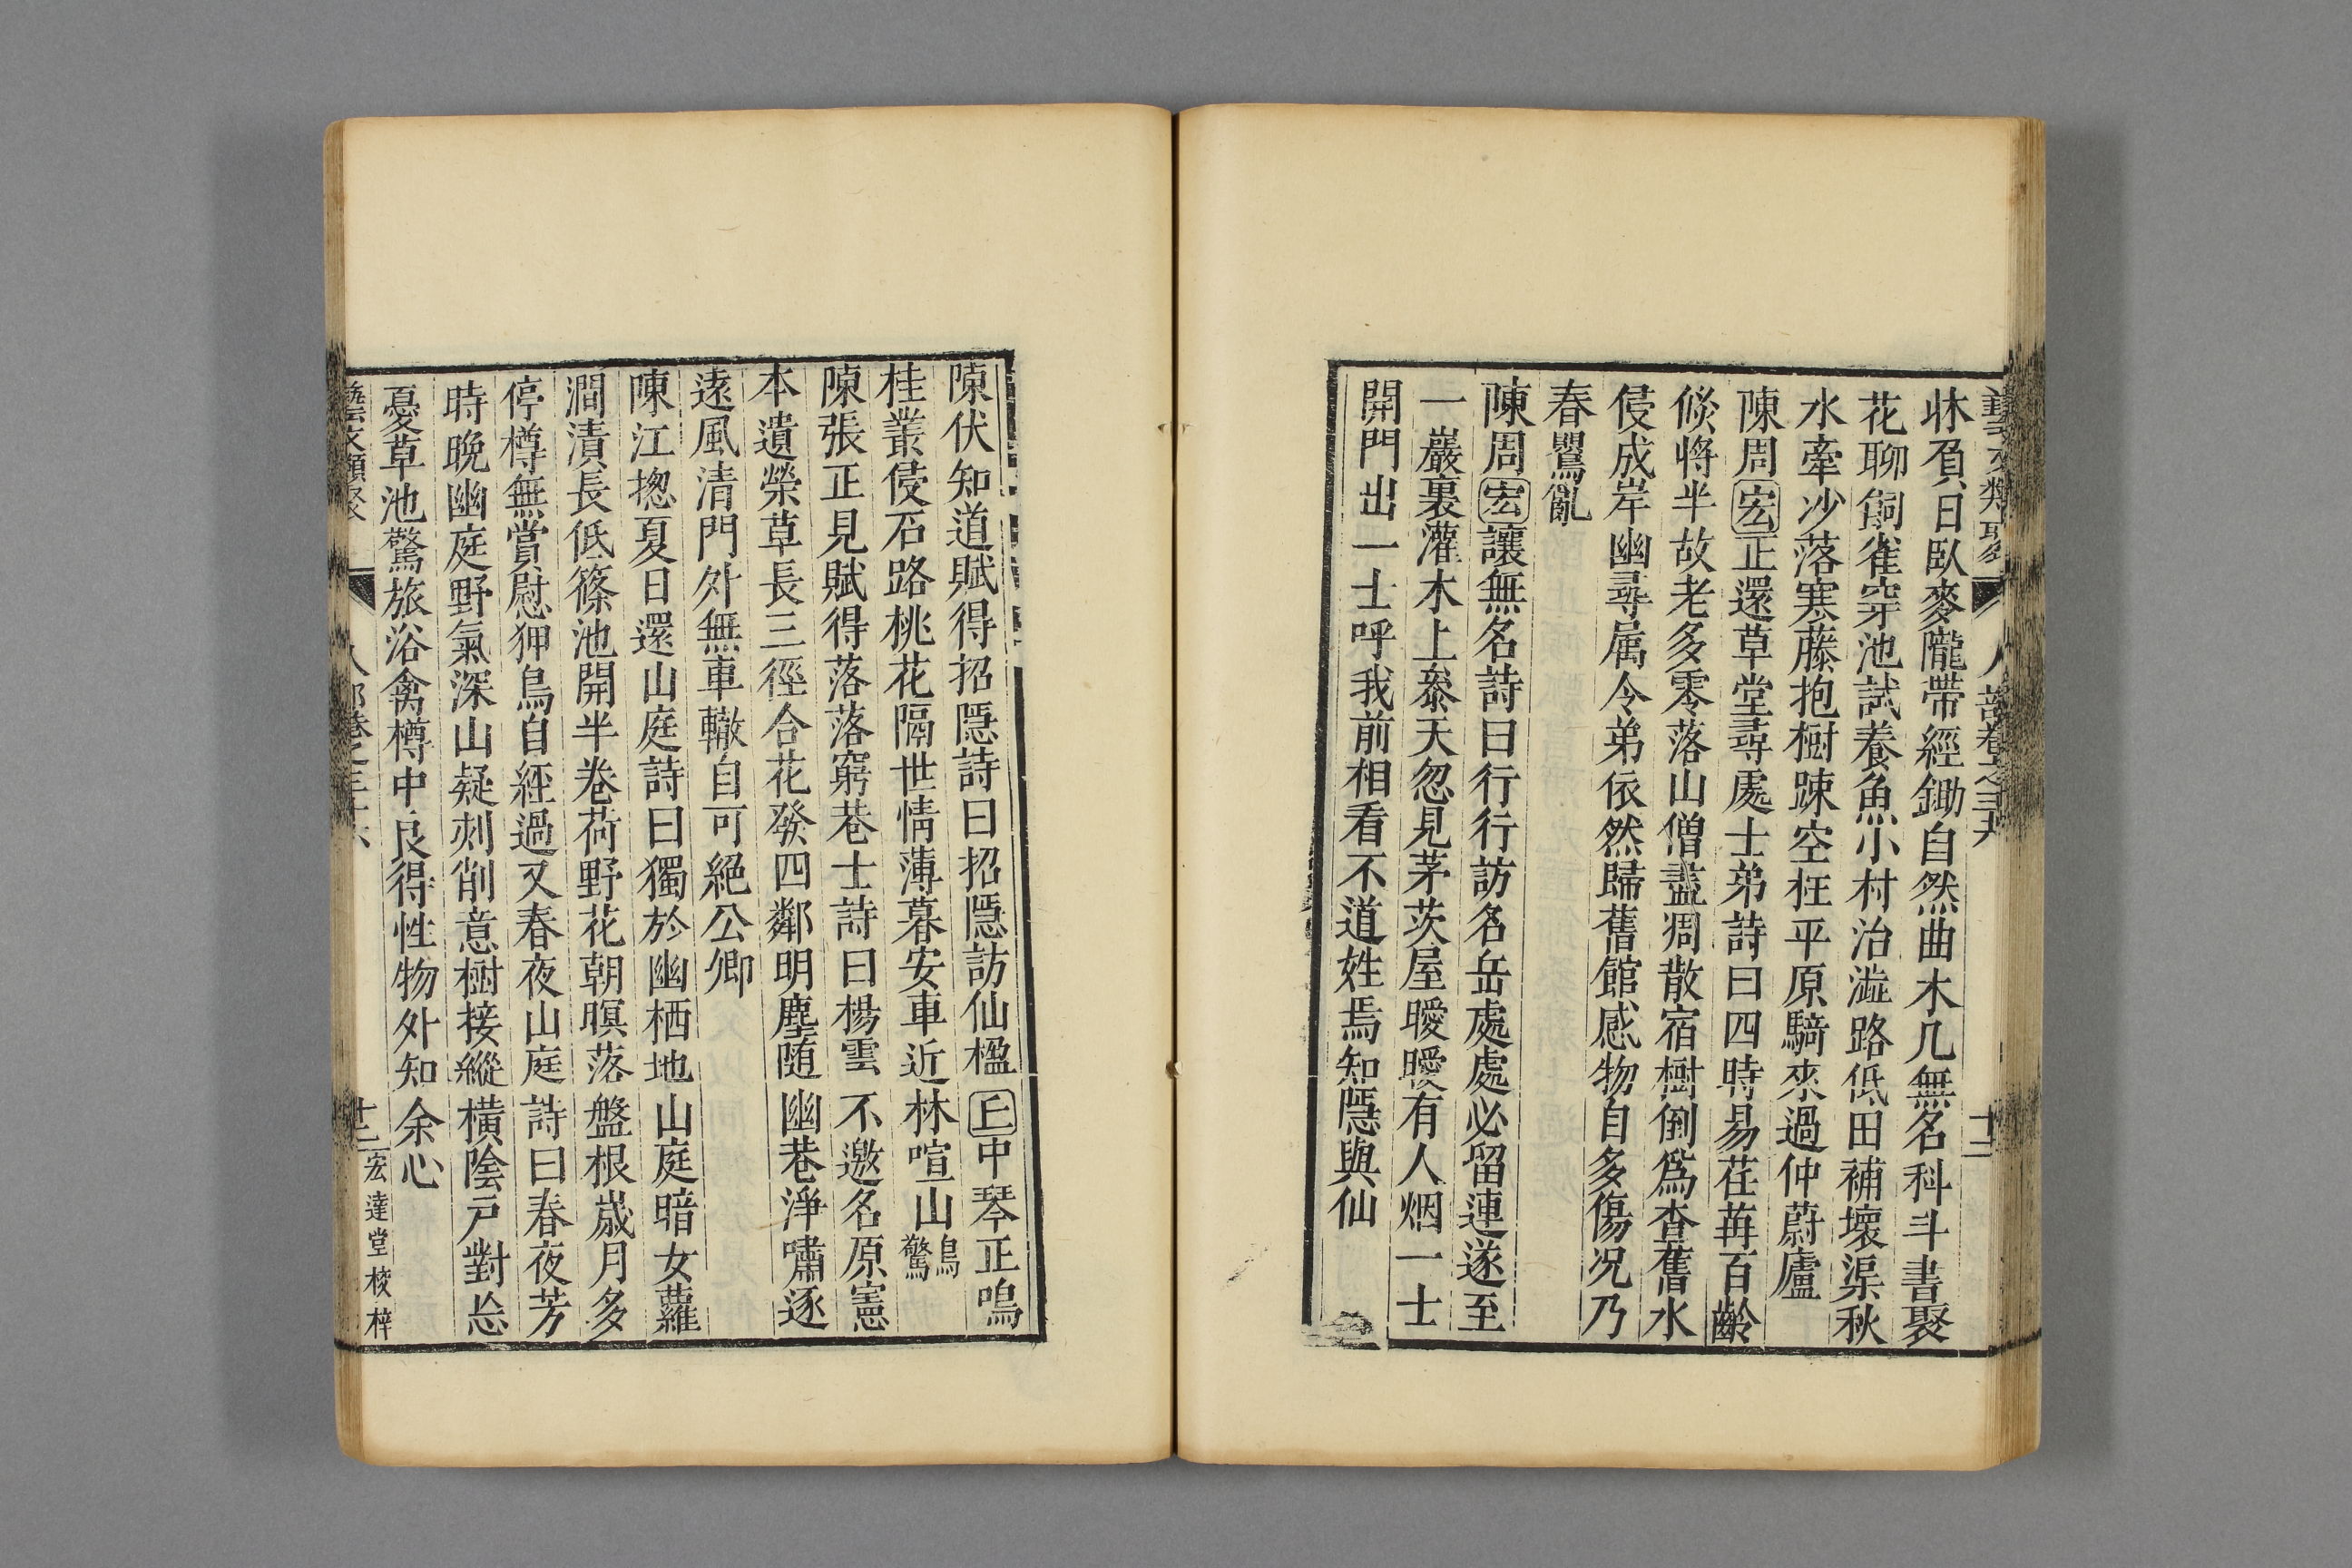 藝文類聚 人部卷之三十六 十二
牀頁日臥麥隴帶經鋤自然曲木几無名科斗書聚
花聊飼雀穿池試養魚小村治澁路低田補壞渠秋
水牽沙落寒藤抱樹踈空枉平原騎來過仲蔚廬
陳周宏正還草堂尋處士弟詩曰四時易荏苒百齡
倐將半故老多零落山僧盡凋散宿樹倒爲查舊水
侵成岸幽尋属令弟依然歸舊館感物自多傷况乃
春鸎亂
陳周宏讓無名詩曰行行訪名岳處處必留連遂至
一巖裏灌木上叅天忽見茅茨屋曖曖有人烟一士
開門出一士呼我前相看不道姓焉知隱與仙
陳伏知道賦得招隱詩曰招隱訪仙楹丘中琴正鳴
桂叢侵石路桃花隔世情薄暮安車近林喧山鳥驚
陳張正見賦得落落窮巷士詩曰楊雲不邀名原憲
本遺榮草長三徑合花發四鄰明塵随幽巷淨嘯逐
遠風清門外無車轍自可絕公卿
陳江揔夏日還山庭詩曰獨於幽栖地山庭暗女蘿
澗漬長低篠池開半卷荷野花朝暝落盤根嵗月多
停樽無賞慰狎鳥自經過又春夜山庭詩曰春夜芳
時晚幽庭野氣深山疑刺削意樹接縱橫陰戸對忩
憂草池驚旅浴禽樽中良得性物外知余心
藝文類聚 人部卷之三十六 十二 宏達堂校梓